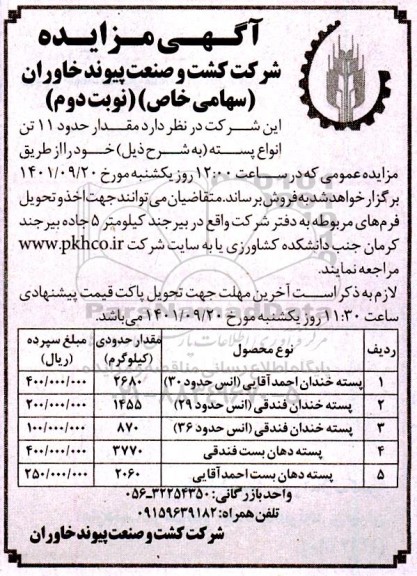 آگهی مزایده
شرکت کشت و صنعت پیوند خاوران
(سهامی خاص) (نوبت دوم)
این شرکت در نظر دارد مقدار حدود ۱۱ تن
انواع پسته (به شرح ذیل) خود را از طریق
مزایده عمومی که در ساعت ۱۲:۰۰ روز یکشنبه مورخ ۱۴۰۱/۰۹/۲۰
برگزار خواهد شد به فروش برساند. متقاضیان می توانند جهت اخذ و تحویل
فرم‌های مربوطه به دفتر شرکت واقع در بیرجند کیلومتر ۵ جاده بیرجند
کرمان جنب دانشکده کشاورزی یا به سایت شرکت www.pkhco.ir
مراجعه نمایند.
لازم به ذکر است آخرین مهلت جهت تحویل پاکت قیمت پیشنهادی
ساعت ۱۱:۳۰ روز یکشنبه مورخ ۱۴۰۱/۰۹/۲۰ می‌باشد.
ردیف نوع محصول مقدار حدودی (کیلوگرم) مبلغ سپرده (ریال)
۱ پسته خندان احمد آقایی (انس حدود ۳۰) ۲۶۸۰ ۴۰۰/۰۰۰/۰۰۰
۲ پسته خندان فندقی (انس حدود ۲۹) ۱۴۵۵ ۲۰۰/۰۰۰/۰۰۰
۳ پسته خندان فندقی (انس حدود ۳۶) ۸۷۰ ۱۰۰/۰۰۰/۰۰۰
۴ پسته دهان بست فندقی ۳۷۷۰ ۴۰۰/۰۰۰/۰۰۰
۵ پسته دهان بست احمد آقایی ۲۰۶۰ ۲۵۰/۰۰۰/۰۰۰
واحد بازرگانی: ۳۲۲۵۴۳۵۰-۰۵۶
تلفن همراه: ۰۹۱۵۹۶۳۹۱۸۲
شرکت کشت و صنعت پیوند خاوران